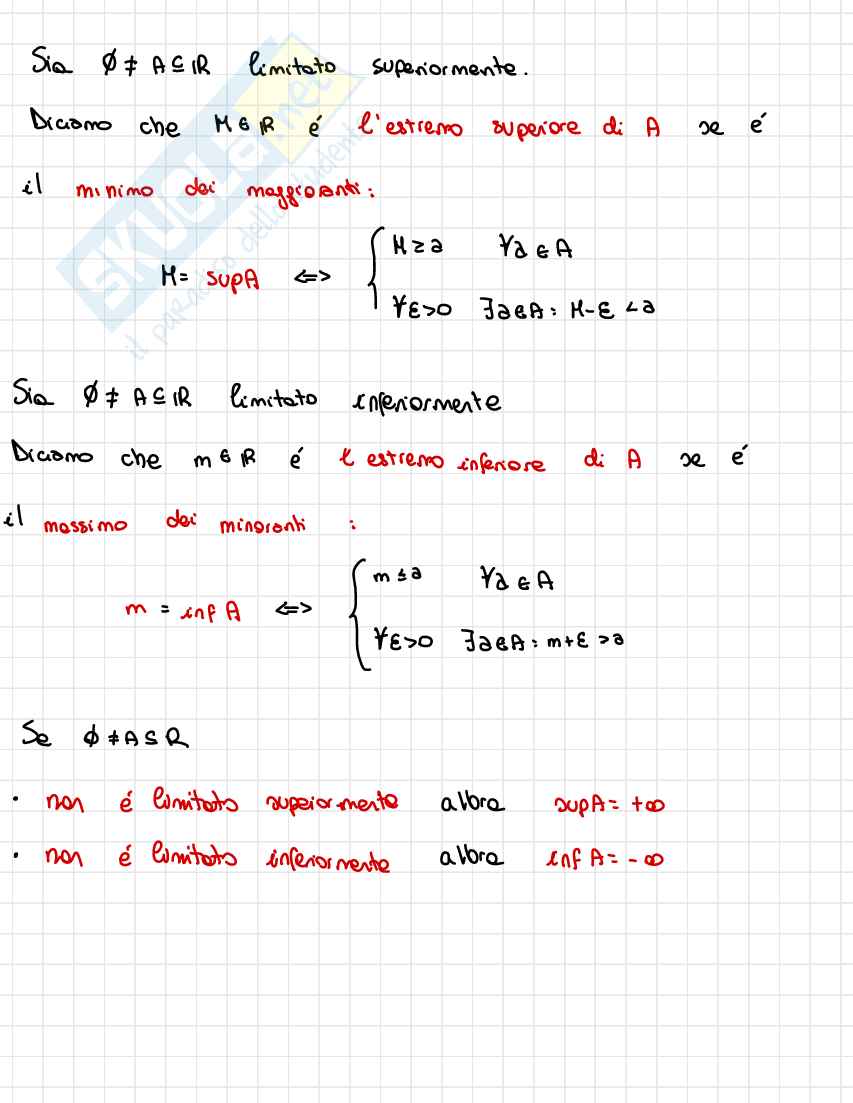 Sia ∅ ≠ A ⊆ ℝ limitato superiormente.
Diciamo che M ∈ ℝ é l'estremo superiore di A se é
il minimo dei maggioranti:
M ≥ a ∀a ∈ A
M = sup A <=>
∀ε>0 ∃a∈A: M-ε < a
Sia ∅ ≠ A ⊆ ℝ limitato inferiormente
Diciamo che m ∈ ℝ é l estremo inferiore di A se é
il massimo dei minoranti :
m ≤ a ∀a ∈ A
m = inf A <=>
∀ε>0 ∃a∈A: m+ε > a
Se ∅ ≠ A ⊆ R
• non é limitato supeiormente allora sup A = +∞
• non é limitato inferiormente allora inf A = -∞
SKUOLA.net
il paradiso dello studente